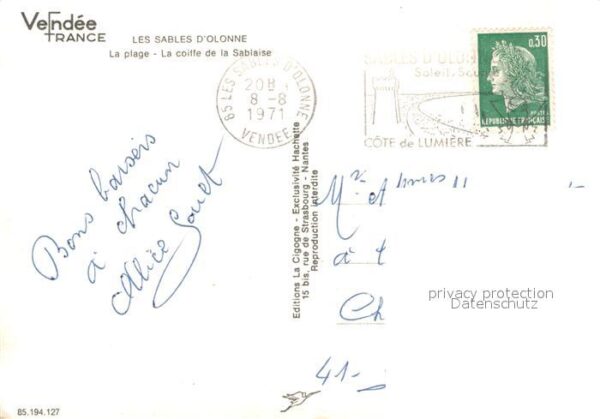 Vendée
FRANCE
LES SABLES D'OLONNE
La plage - La coiffe de la Sablaise
85 LES SABLES D'OLONNE
20H
8-8
1971
VENDEE
SABLES D'OLO
Soleil,
CÔTE de LUMIÈRE
0,30
REPUBLIQUE FRANÇAISE
Bons baisers
à chacun
Alice
Editions La Cigogne - Exclusivité Hachette
15 bis, rue de Strasbourg - Nantes
Reproduction interdite
à
Ch
41-
privacy protection
Datenschutz
85.194.127